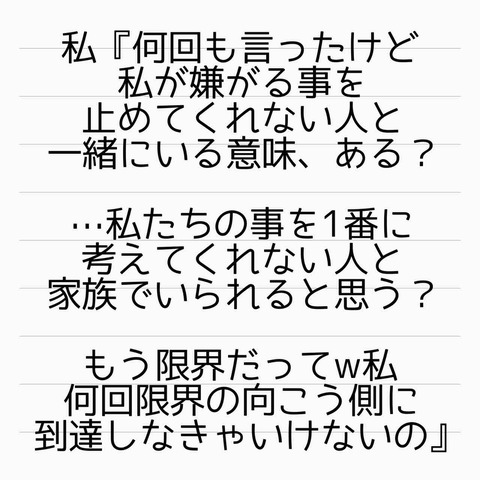 私『何回も言ったけど
私が嫌がる事を
止めてくれない人と
一緒にいる意味、ある？
…私たちの事を1番に
考えてくれない人と
家族でいられると思う？
もう限界だってw私
何回限界の向こう側に
到達しなきゃいけないの』